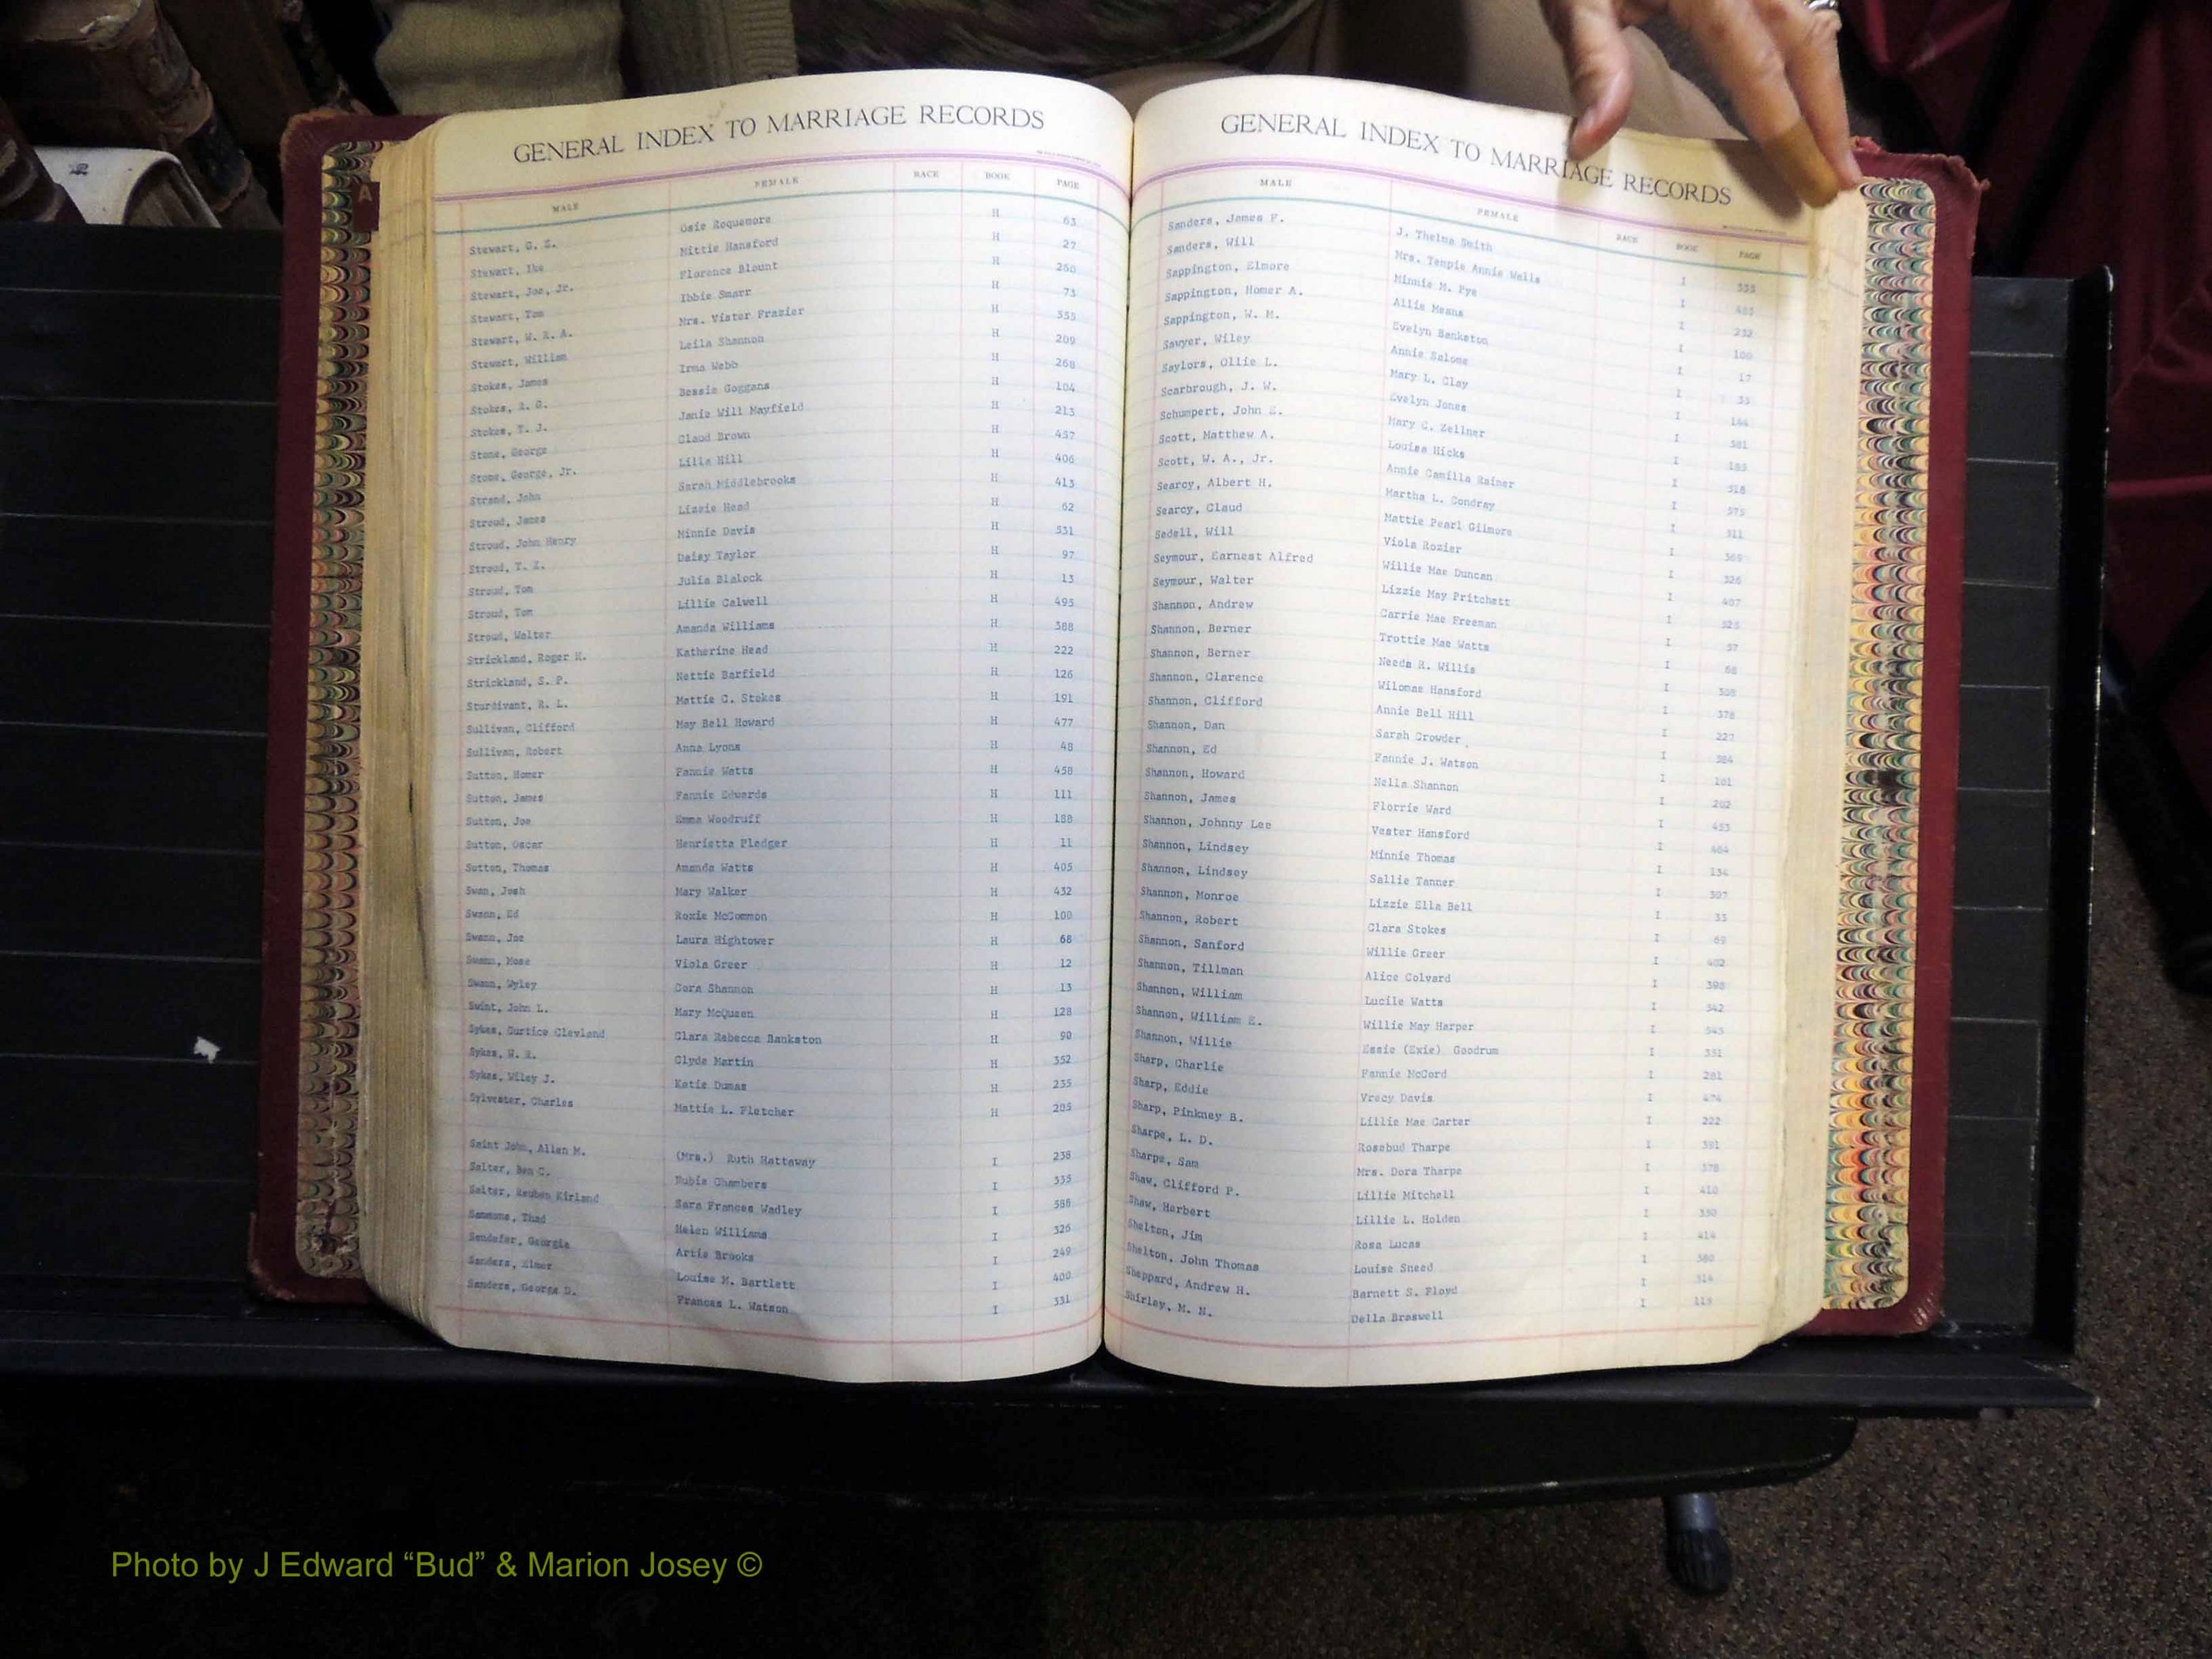 GENERAL INDEX TO MARRIAGE RECORDS
MALE FEMALE RACE BOOK PAGE
Stewart, G. Z. Osie Roquemore H 63
Stewart, Ike Mittie Hansford H 27
Stewart, Joe, Jr. Florence Blount H 260
Stewart, Tom Ibbie Smarr H 73
Stewart, W. R. A. Mrs. Vister Frazier H 355
Stewart, William Leila Shannon H 209
Stokes, James Irma Webb H 268
Stokes, R. G. Bessie Goggans H 104
Stokes, T. J. Janie Will Mayfield H 213
Stone, George Claud Brown H 457
Stone, George, Jr. Lilla Hill H 406
Strand, John Sarah Middlebrooks H 413
Stroud, James Lizzie Head H 62
Stroud, John Henry Minnie Davis H 531
Stroud, T. Z. Daisy Taylor H 97
Stroud, Tom Julia Blalock H 13
Stroud, Tom Lillie Calwell H 495
Stroud, Walter Amanda Williams H 388
Strickland, Roger H. Katherine Head H 222
Strickland, S. P. Nettie Barfield H 126
Sturdivant, R. L. Mattie C. Stokes H 191
Sullivan, Clifford May Bell Howard H 477
Sullivan, Robert Anna Lyons H 48
Sutton, Homer Fannie Watts H 458
Sutton, James Fannie Edwards H 111
Sutton, Joe Emma Woodruff H 188
Sutton, Oscar Henrietta Pledger H 11
Sutton, Thomas Amanda Watts H 405
Swan, Josh Mary Walker H 432
Swann, Ed Roxie McCommon H 100
Swann, Joe Laura Hightower H 68
Swann, Mose Viola Greer H 12
Swann, Wyley Cora Shannon H 13
Swint, John L. Mary McQueen H 128
Sykes, Curtice Clevland Clara Rebecca Bankston H 90
Sykes, W. R. Clyde Martin H 352
Sykes, Wiley J. Katie Dumas H 235
Sylvester, Charles Mattie L. Fletcher H 205
Saint John, Allen M. (Mrs.) Ruth Hattaway I 238
Salter, Ben C. Rubie Chambers I 335
Salter, Reuben Kirland Sara Frances Wadley I 588
Sammons, Thad Helen Williams I 326
Sandefer, Georgia Artis Brooks I 249
Sanders, Elmer Louise M. Bartlett I 400
Sanders, George D. Frances L. Watson I 331
GENERAL INDEX TO MARRIAGE RECORDS
MALE FEMALE RACE BOOK PAGE
Sanders, James F. J. Thelma Smith I
Sanders, Will Mrs. Tempie Annie Wells I
Sappington, Elmore Minnie M. Pye I 232
Sappington, Homer A. Allie Means I 100
Sappington, W. M. Evelyn Bankston I 17
Sawyer, Wiley Annie Salome I
Saylors, Ollie L. Mary L. Clay I
Scarbrough, J. W. Evelyn Jones I
Schumpert, John E. Mary C. Zellner I
Scott, Matthew A. Louise Hicks I
Scott, W. A., Jr. Annie Camilla Rainer I
Searcy, Albert H. Martha L. Condray I
Searcy, Claud Mattie Pearl Gilmore I
Sedell, Will Viola Rozier I
Seymour, Earnest Alfred Willie Mae Duncan I 326
Seymour, Walter Lizzie May Pritchett I 407
Shannon, Andrew Carrie Mae Freeman I
Shannon, Berner Trottie Mae Watts I 57
Shannon, Berner Needa R. Willis I
Shannon, Clarence Wilomae Hansford I
Shannon, Clifford Annie Bell Hill I 378
Shannon, Dan Sarah Crowder I 227
Shannon, Ed Fannie J. Watson I
Shannon, Howard Nella Shannon I
Shannon, James Florrie Ward I 202
Shannon, Johnny Lee Vester Hansford I 453
Shannon, Lindsey Minnie Thomas I 464
Shannon, Lindsey Sallie Tanner I 134
Shannon, Monroe Lizzie Ella Bell I
Shannon, Robert Clara Stokes I 33
Shannon, Sanford Willie Greer I 69
Shannon, Tillman Alice Colvard I 402
Shannon, William Lucile Watts I 398
Shannon, William E. Willie May Harper I 342
Shannon, Willie Essie (Exie) Goodrum I
Sharp, Charlie Fannie McCord I
Sharp, Eddie Vrecy Davis I
Sharp, Pinkney B. Lillie Mae Carter I
Sharpe, L. D. Rosebud Tharpe I
Sharpe, Sam Mrs. Dora Tharpe I
Shaw, Clifford P. Lillie Mitchell I
Shaw, Herbert Lillie L. Holden I
Shelton, Jim Rosa Lucas I
Shelton, John Thomas Louise Sneed I
Sheppard, Andrew H. Barnett S. Floyd I
Shirley, M. N. Della Braswell I
Photo by J Edward “Bud” & Marion Josey ©